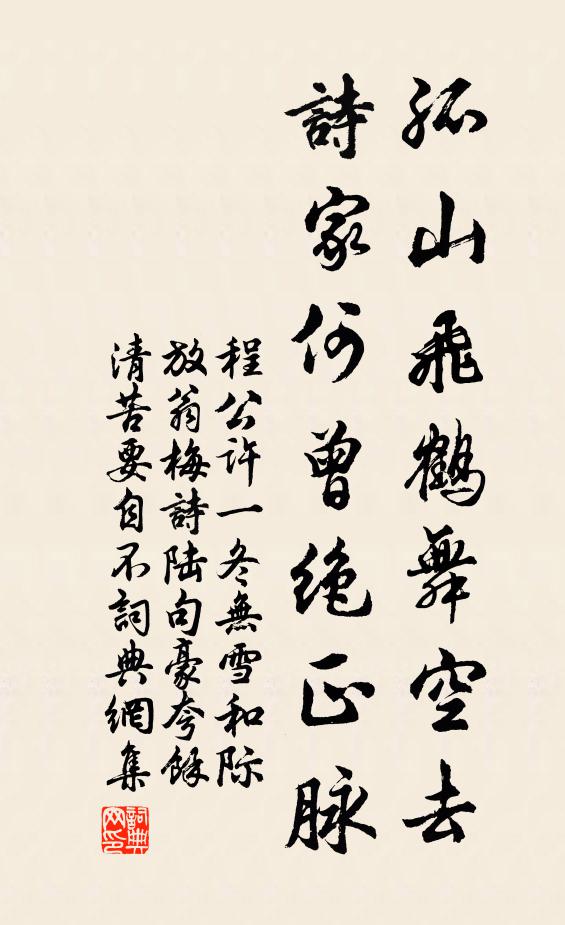 孤山飛鶴舞空去
詩家何曾絶正脉
程公許一冬無雪和际
放翁梅詩陸句豪夸餘
清苦要自不詞典網集
詞典網印